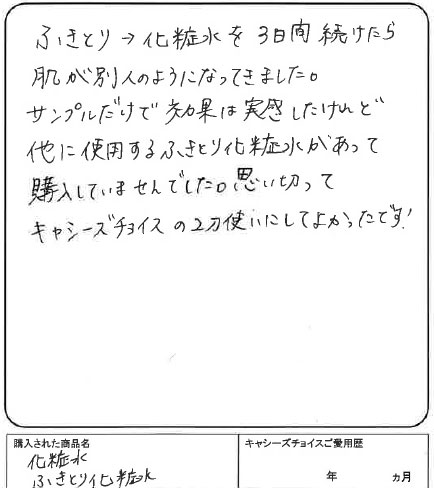 ふきとり→化粧水を3日間続けたら
肌が別人のようになってきました。
サンプルだけで効果は実感したけれど
他に使用するふきとり化粧水があって
購入していませんでした。思い切って
キャシーズチョイスの2刀使いにしてよかったです!
購入された商品名
化粧水
ふきとり化粧水
キャシーズチョイスご愛用歴
年 ヵ月